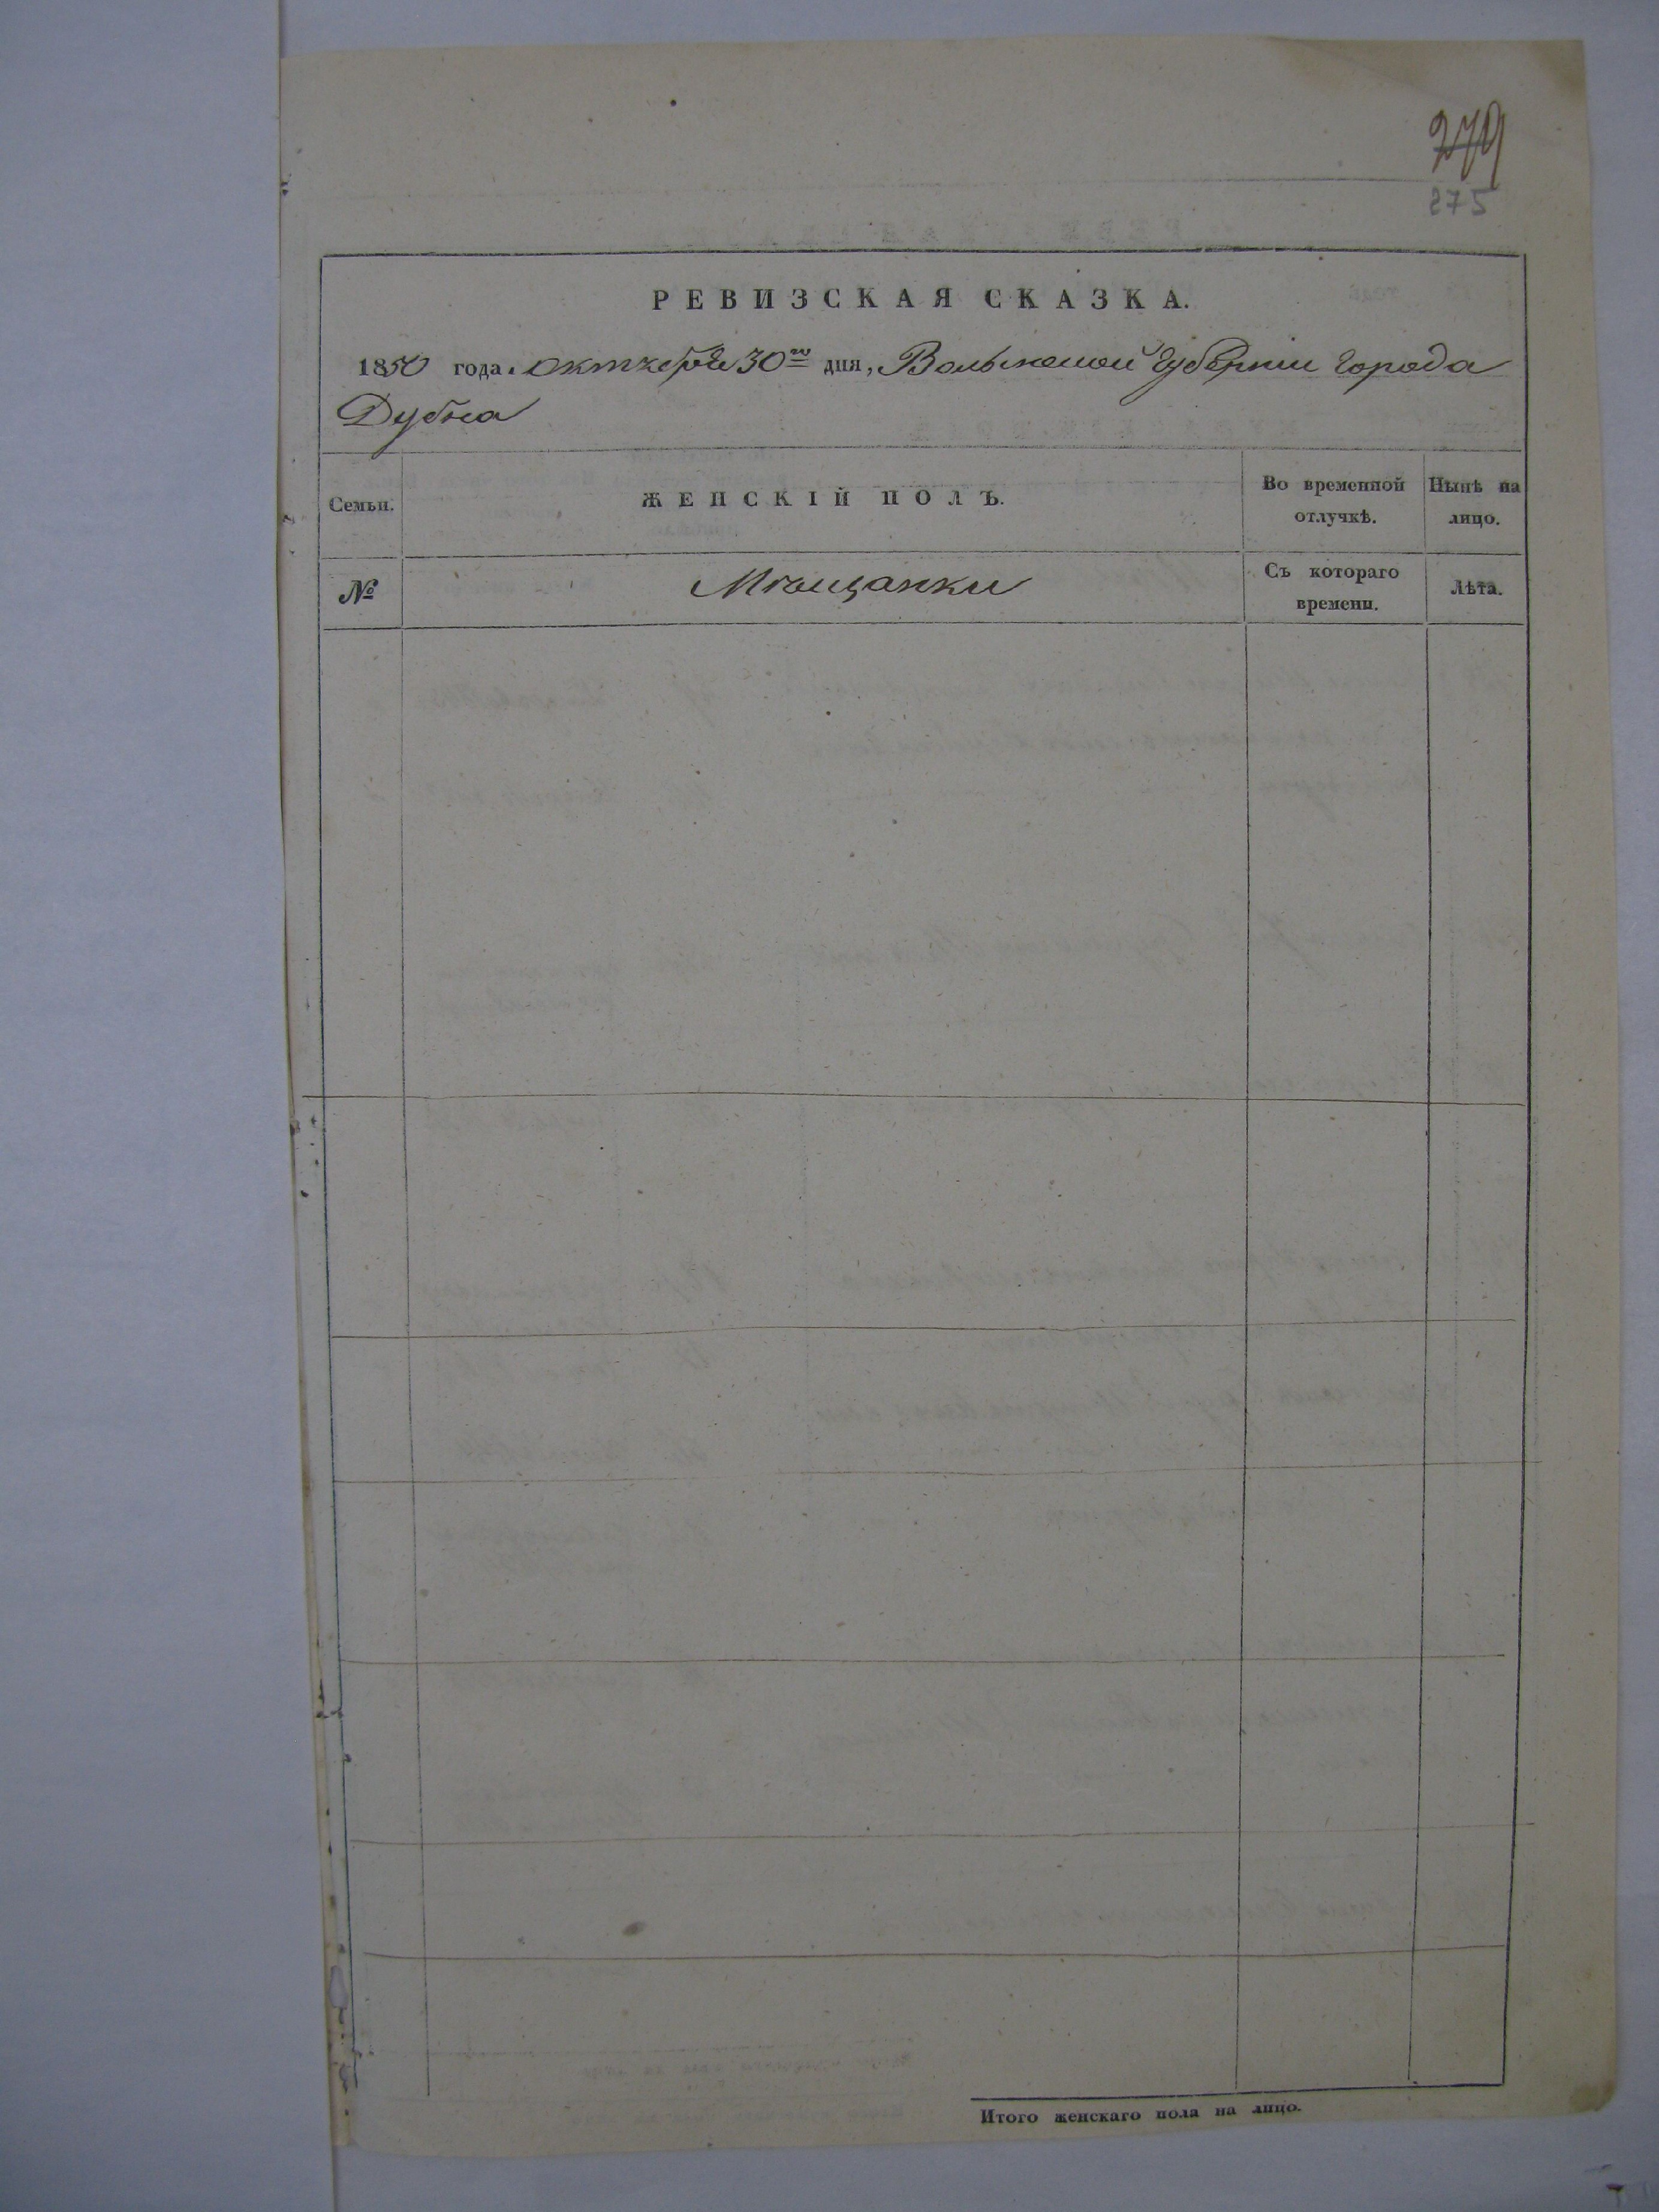 279
275
РЕВИЗСКАЯ СКАЗКА.
1850 года. октября 30го дня, Волынской губернии города
Дубна
Семьи.
ЖЕНСКІЙ ПОЛЪ.
Во временной
отлучкѣ.
Нынѣ на
лицо.
№
Мѣщанки
Съ котораго
времени.
Лѣта.
Итого женскаго пола на лицо.